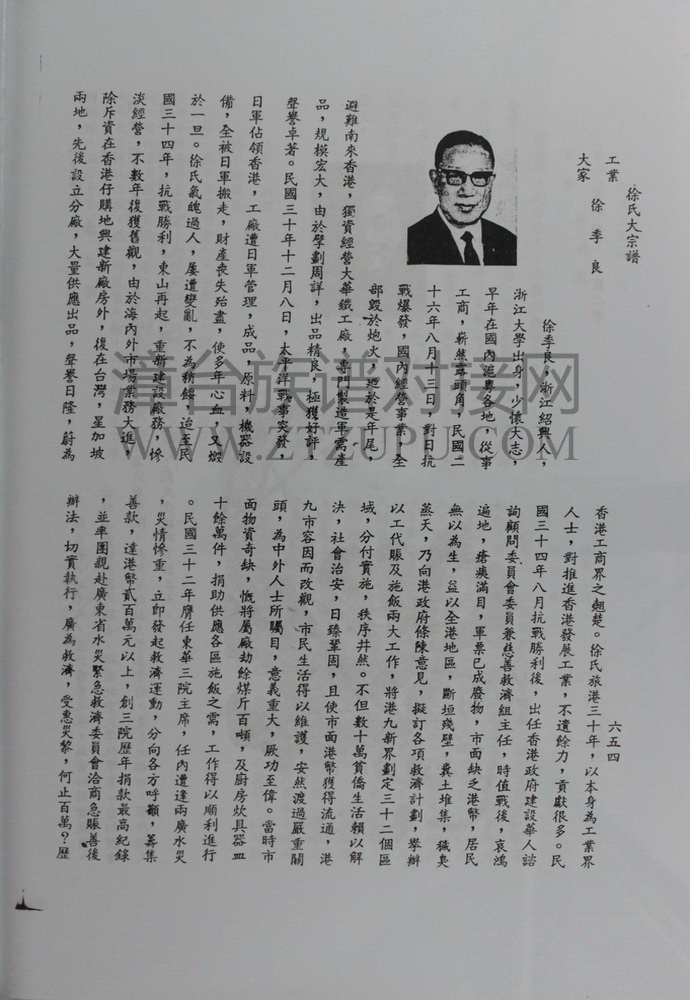 徐氏大宗譜
工業
大家　徐季良
徐季良，浙江紹興人，
浙江大學出身，少懷大志，
早年在國內滬粵各地，從事
工商，嶄然露頭角，民國二
十六年八月十三日，對日抗
戰爆發，國內經營事業，全
部毀於炮火，迨於是年尾，
避難南來香港，獨資經營大華鐵工廠，專門製造軍需產
品，規模宏大，由於擘劃周詳，出品精良，極獲好評，
聲譽卓著。民國三十年十二月八日，太平洋戰事突發，
日軍佔領香港，工廠遭日軍管理，成品，原料，機器設
備，全被日軍搬走，財產喪失殆盡，使多年心血，又燬
於一旦。徐氏氣魄過人，屢遭變亂，不為稍餒，迨至民
國三十四年，抗戰勝利，東山再起，重新建設廠務，慘
淡經營，不數年後獲舊觀，由於海內外市場業務大進，
除斥資在香港仔購地興建新廠房外，復在台灣，星加坡
兩地，先後設立分廠，大量供應出品，聲譽日隆，蔚為
六五四
香港工商界之翹楚。徐氏旅港三十年，以本身為工業界
人士，對推進香港發展工業，不遺餘力，貢獻很多。民
國三十四年八月抗戰勝利後，出任香港政府建設華人諮
詢顧問委員會委員兼慈善救濟組主任，時值戰後，哀鴻
遍地，瘡痍滿目，軍票已成廢物，市面缺乏港幣，居民
無以為生，益以全港地區，斷垣殘壁，糞土堆集，穢臭
蒸天，乃向港政府條陳意見，擬訂各項救濟計劃，舉辦
以工代賑及施飯兩大工作，將港九新界劃定三十二個區
域，分付實施，秩序井然。不但數十萬貧僑生活賴以解
決，社會治安，日臻鞏固，且使市面港幣獲得流通，港
九市容因而改觀，市民生活得以維護，安然渡過嚴重關
頭，為中外人士所矚目，意義重大，厥功至偉。當時市
面物資奇缺，慨將屬廠劫餘煤斤百噸，及廚房炊具器皿
十餘萬件，捐助供應各區施飯之需，工作得以順利進行
。民國三十二年膺任東華三院主席，任內遭逢兩廣水災
，災情慘重，立即發起救濟運動，分向各方呼籲，籌集
善款，達港幣貳百萬元以上，創三院歷年捐款最高紀錄
，並率團親赴廣東省水災緊急救濟委員會洽商急賑善後
辦法，切實執行，廣為救濟，受惠災黎，何止百萬？歷
漳台族谱对接网
WWW.ZTZUPU.COM